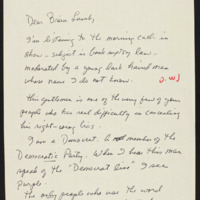 Dear Brian Lamb,
I'm listening to the morning call-in
show - subject is bankruptcy law -
moderated by a young dark haired man
whose name I do not know.
This gentleman is one of the very few of your
people who has real difficulty in concealing
his right-wing bias.
I am a Democrat. A member of the
Democratic Party. When I hear this man
speak of the "Democrat bill" I see
purple.
The only people who use the word